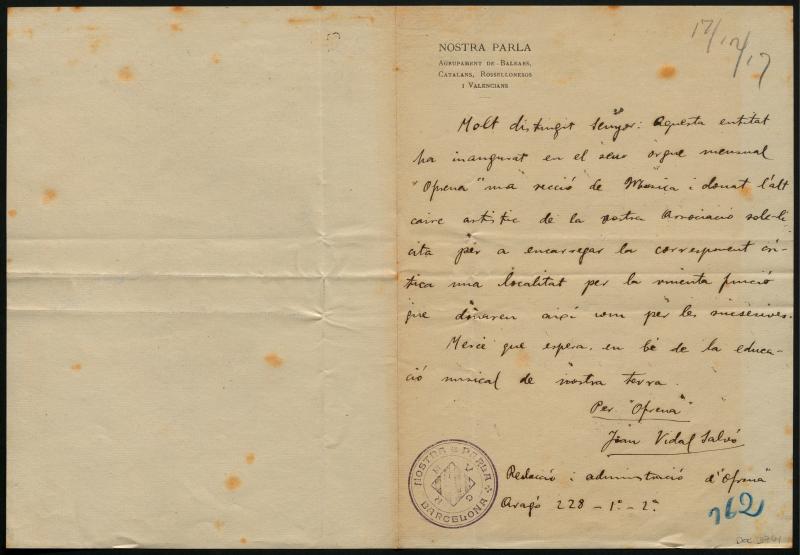 17/12/17
NOSTRA PARLA
AGRUPAMENT DE BALEARS,
CATALANS, ROSSELLONESOS
I VALENCIANS
Molt distingit Senyor: Aquesta entitat
ha inaugurat en el seu orgue mensual
"Ofrena" una secció de Música i donat l'alt
caire artistic de la vostra Associació sol·li
cita per a encarregar la corresponent crí-
tica una localitat per la vinenta funció
que donaren aixi com per les succesives.
Mercè que espera, en bé de la educa-
ció musical de nostra terra.
Per "Ofrena"
Joan Vidal Salvó
Redacció i administració d'"Ofrena"
Aragó 228 - 1er - 2a
NOSTRA PARLA
BARCELONA
762